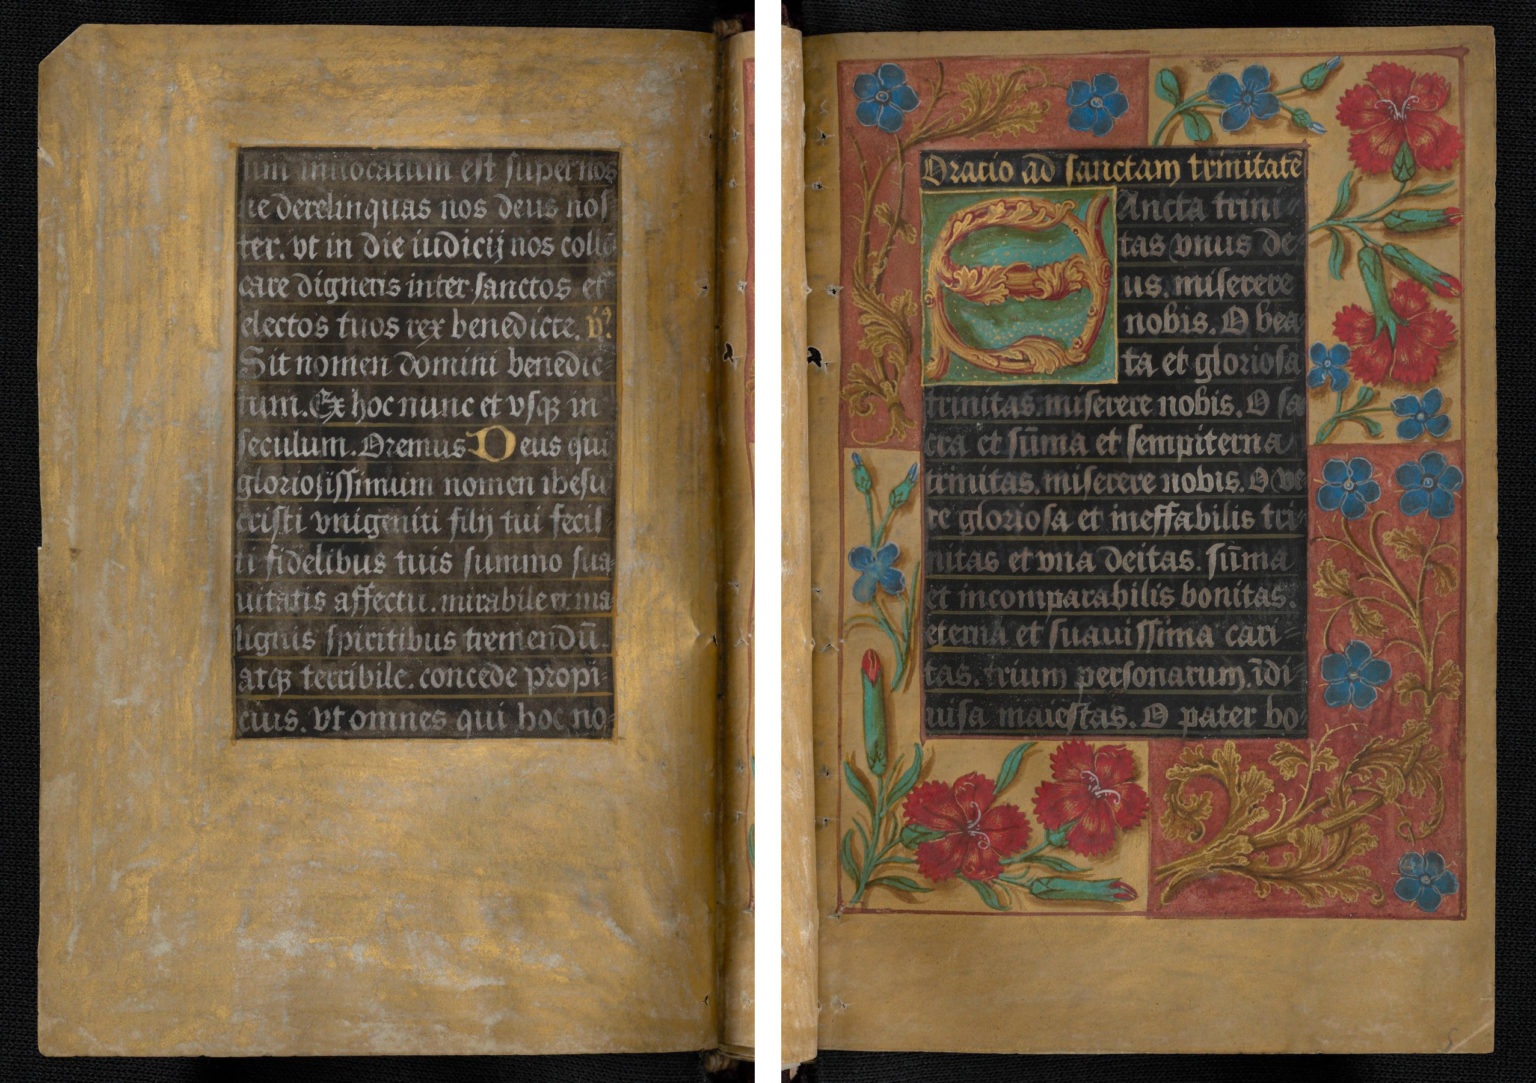 um inuocatum est super nos
ne derelinquas nos deus nos
ter. vt in die iudicij nos collo
care digneris inter sanctos et
electos tuos rex benedicte. v̉.
Sit nomen domini benedic
tum. Ex hoc nunc et vsqꝫ in
seculum. Oremus Deus qui
gloriosissimum nomen ihesu
cristi vnigeniti filij tui fecis
ti fidelibus tuis summo sua-
uitatis affectu. mirabile et ma
lignis spiritibus tremendū.
atqꝫ terribile. concede propi-
cius. vt omnes qui hoc no-
Oratio ad sanctam trinitatē
SAncta trini-
tas vnus de-
us. miserere
nobis. O bea
ta et gloriosa
trinitas. miserere nobis. O sa
cra et sūma et sempiterna
trinitas. miserere nobis. O ve
re gloriosa et ineffabilis tri
nitas et vna deitas. sūma
et incomparabilis bonitas.
eterna et suauissima cari-
tas. trium personarum. īdi-
uisa maiestas. O pater bo-